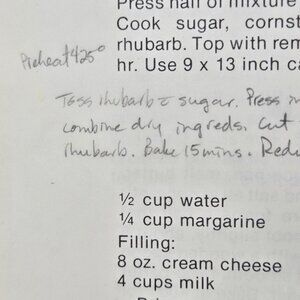 Press half of mixture
Cook sugar, cornst
rhubarb. Top with rem
hr. Use 9 x 13 inch ca
Preheat 425°
Toss rhubarb c̄ sugar. Press in
combine dry ingreds. Cut
rhubarb. Bake 15 mins. Redu
½ cup water
¼ cup margarine
Filling:
8 oz. cream cheese
4 cups milk